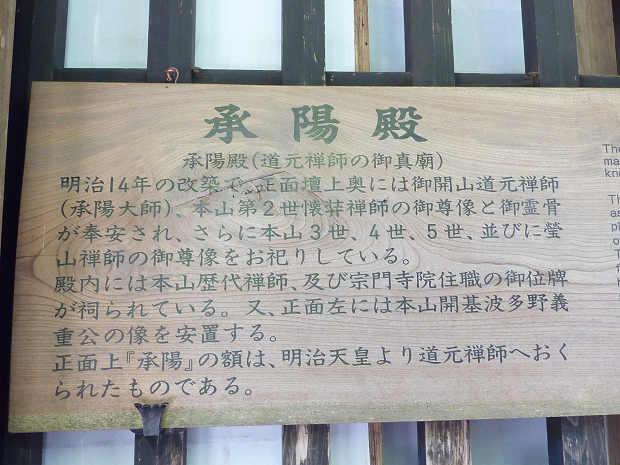 承陽殿
承陽殿(道元禅師の御真廟)
明治14年の改築で、正面壇上奥には御開山道元禅師
(承陽大師)、本山第2世懐弉禅師の御尊像と御霊骨
が奉安され、さらに本山3世、4世、5世、並びに瑩
山禅師の御尊像をお祀りしている。
殿内には本山歴代禅師、及び宗門寺院住職の御位牌
が祠られている。又、正面左には本山開基波多野義
重公の像を安置する。
正面上『承陽』の額は、明治天皇より道元禅師へおく
られたものである。
The
ma
kn
Th
as
pl